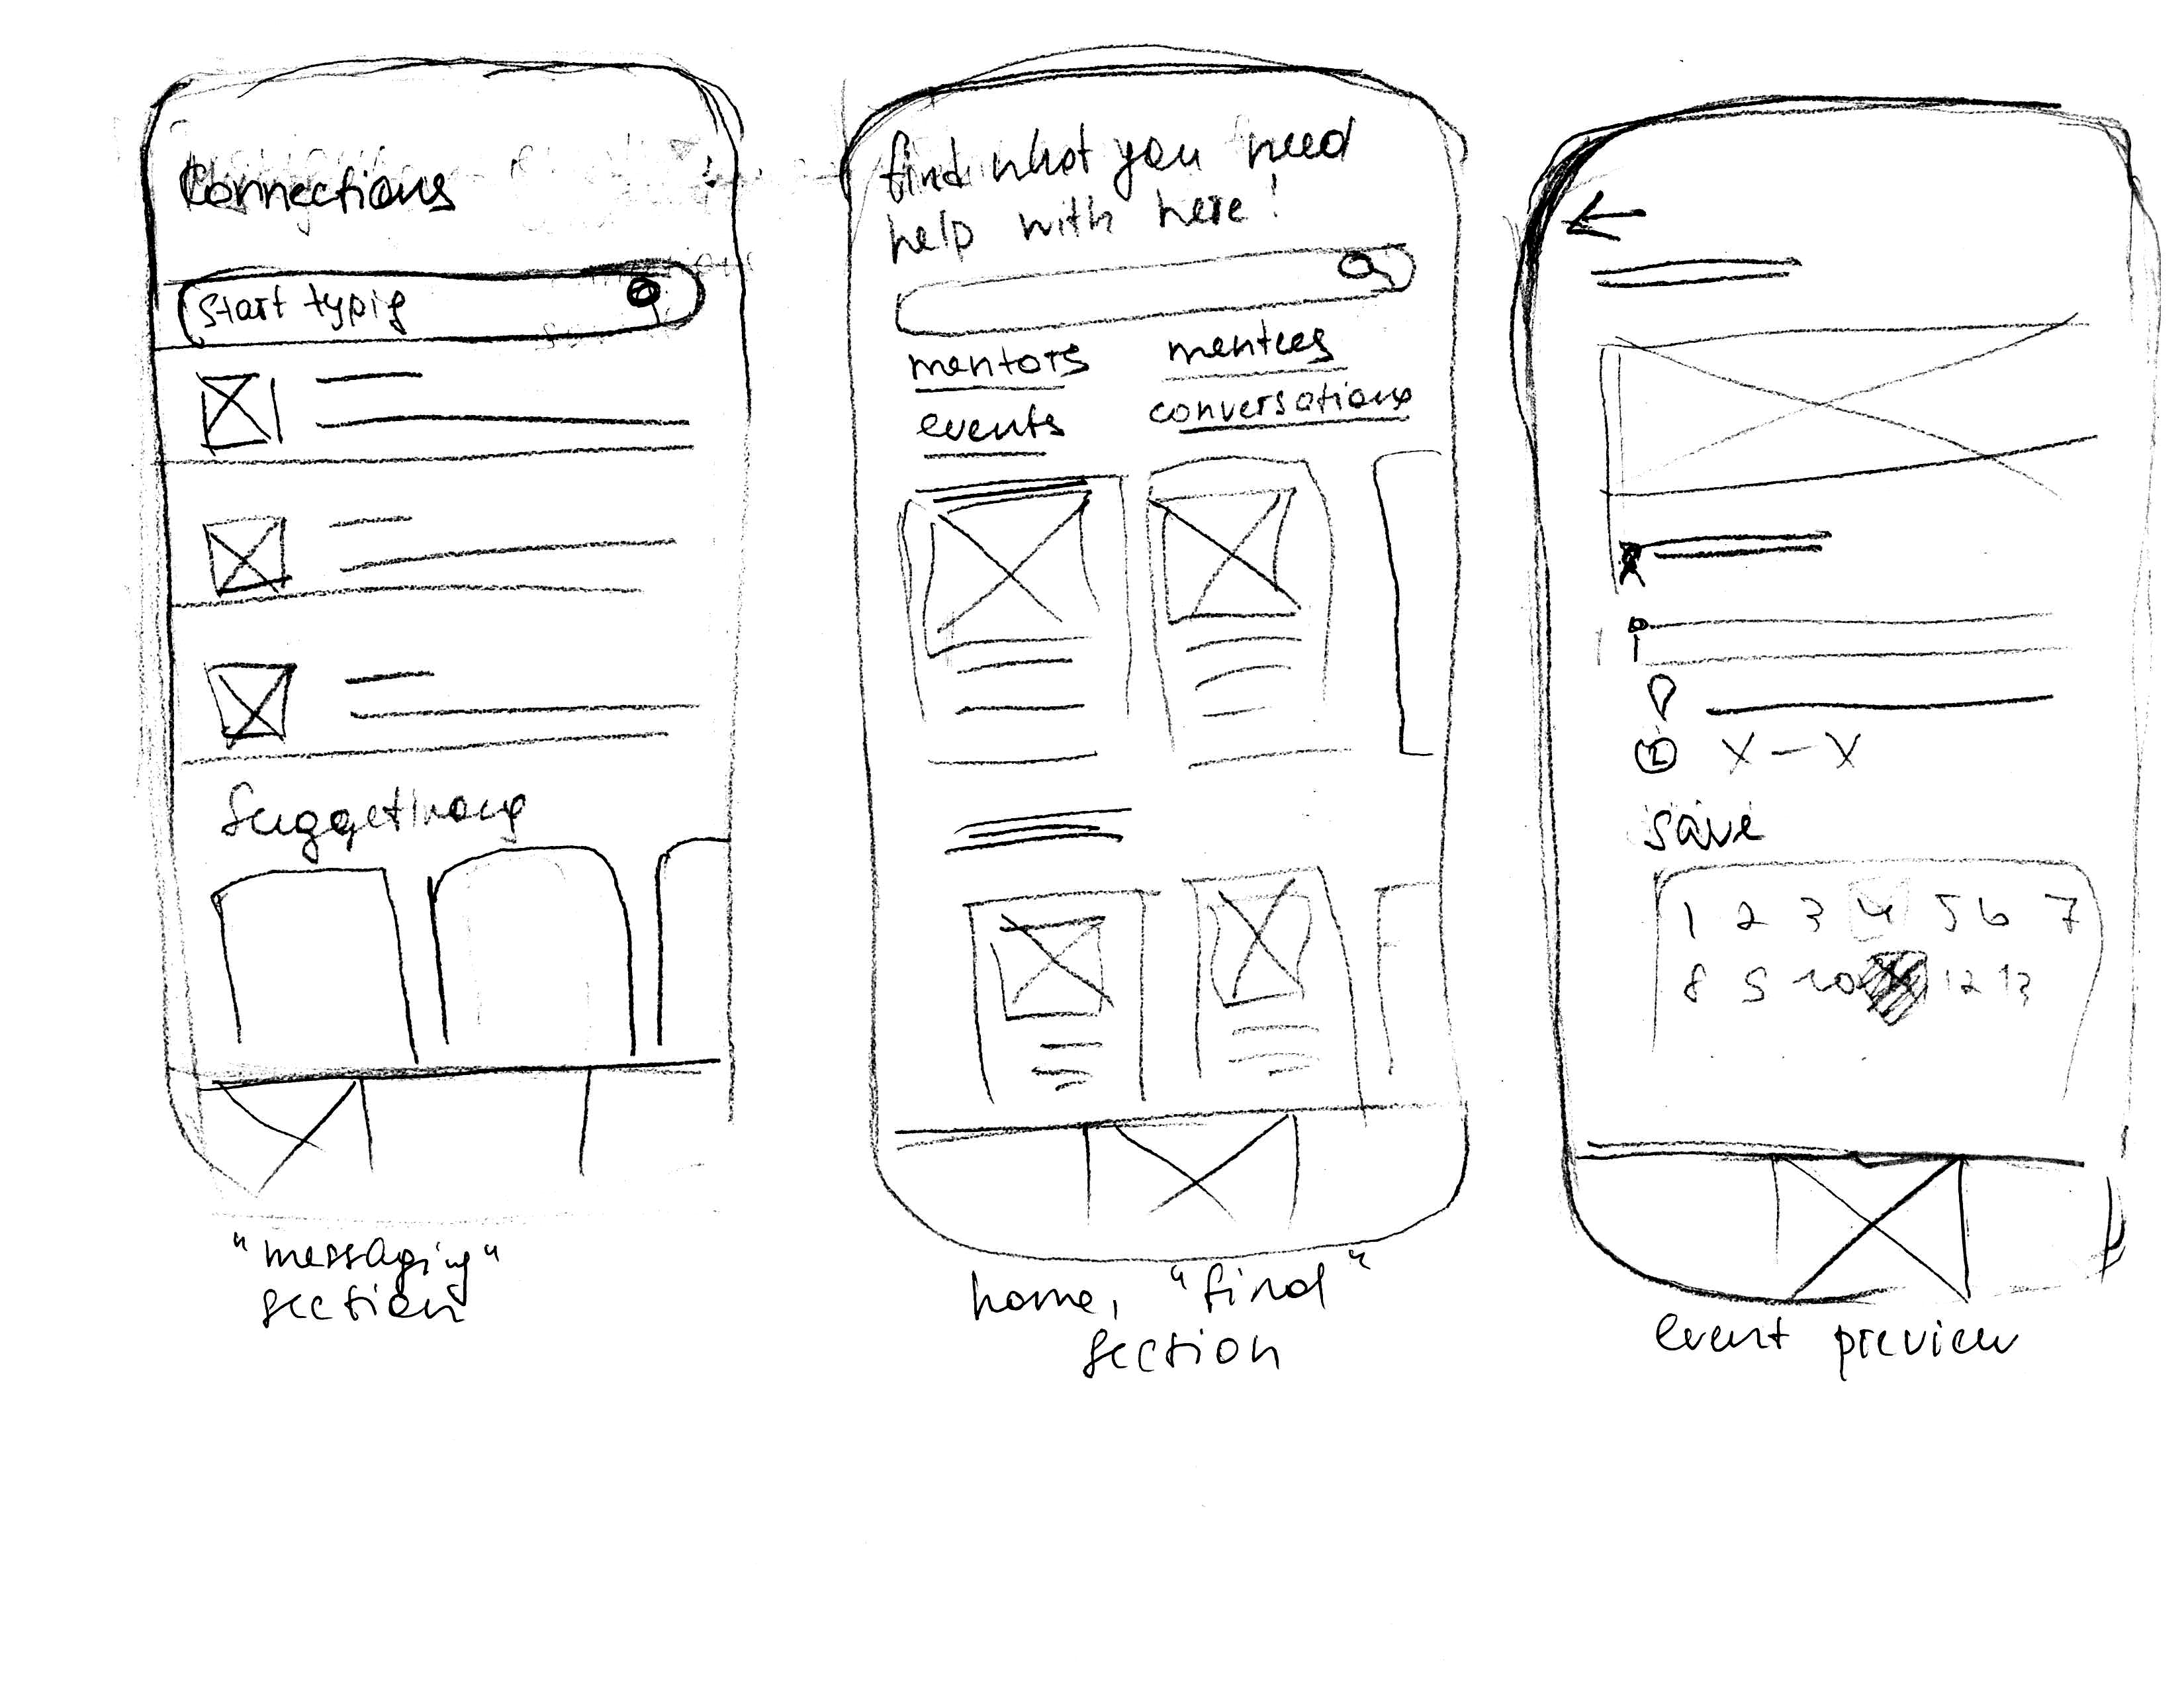 Connections
start typig
"messaging"
section
find what you need
help with here!
mentors mentees
events conversations
home, "find"
section
X — X
save
1 2 3 4 5 6 7
8 9 10 12 13
event preview